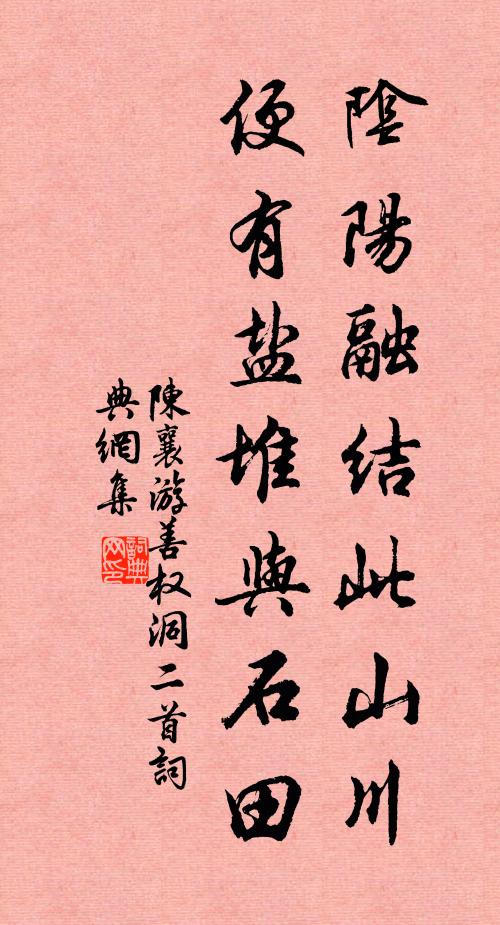 陰陽融結此山川
便有盐堆與石田
陳襄游善权洞二首詞
典網集
詞典网印